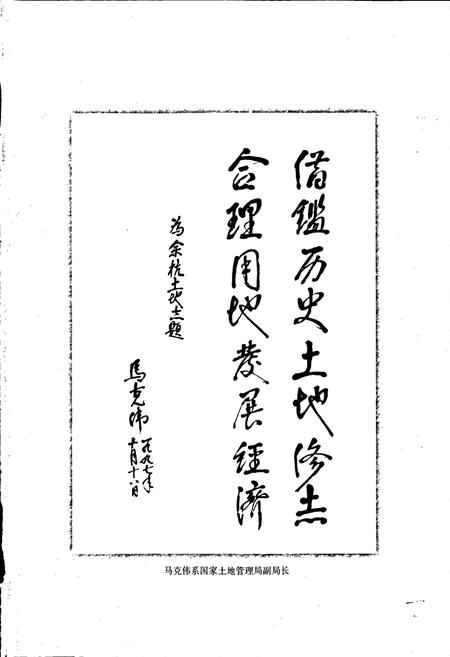 借鑑历史土地修志
合理用地发展经济
为余杭土地志题
马克伟
一九九七年
十月十八日
马克伟系国家土地管理局副局长